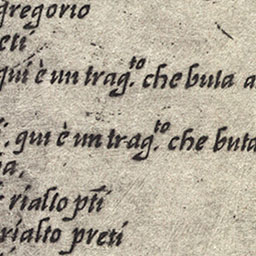 gregorio
eti
qui è un trag.to che buta a
. qui è un trag.to che buta
a.
rialto pti
rialto preti